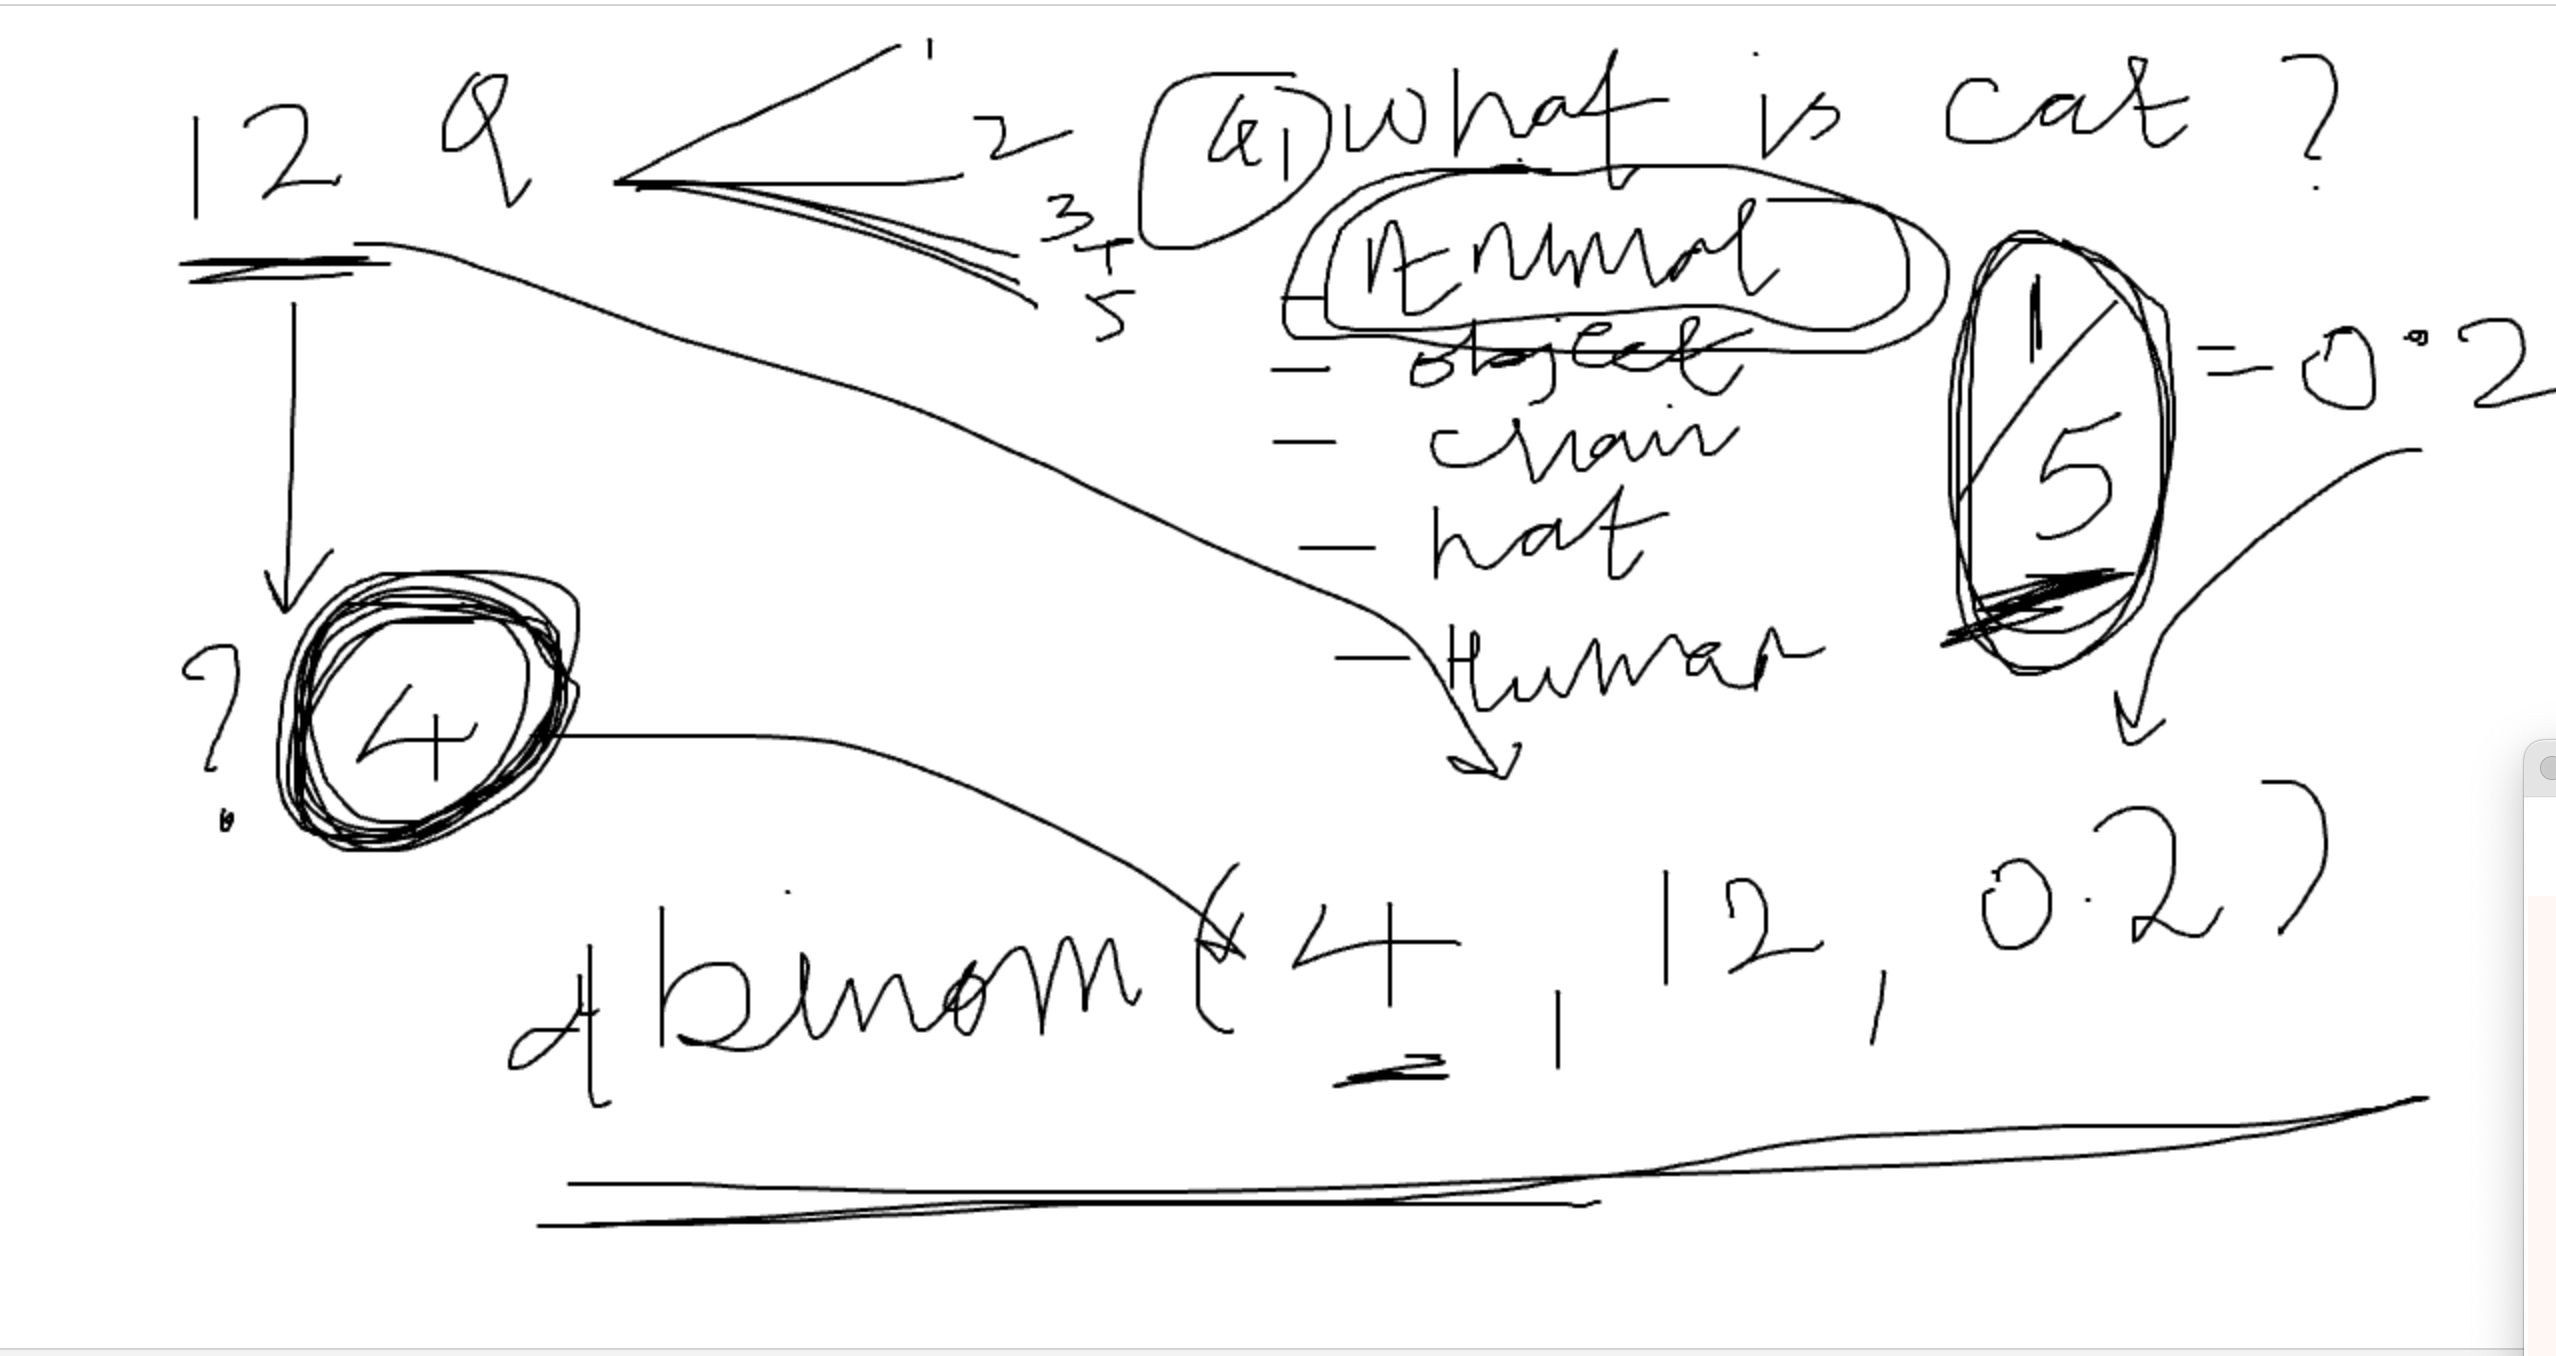 12 Q
1
2
3
4
5
Q1 what is cat ?
- Animal
- object
- chair
- hat
- Human
1/5 = 0.2
? 4
dbinom (4, 12, 0.2)